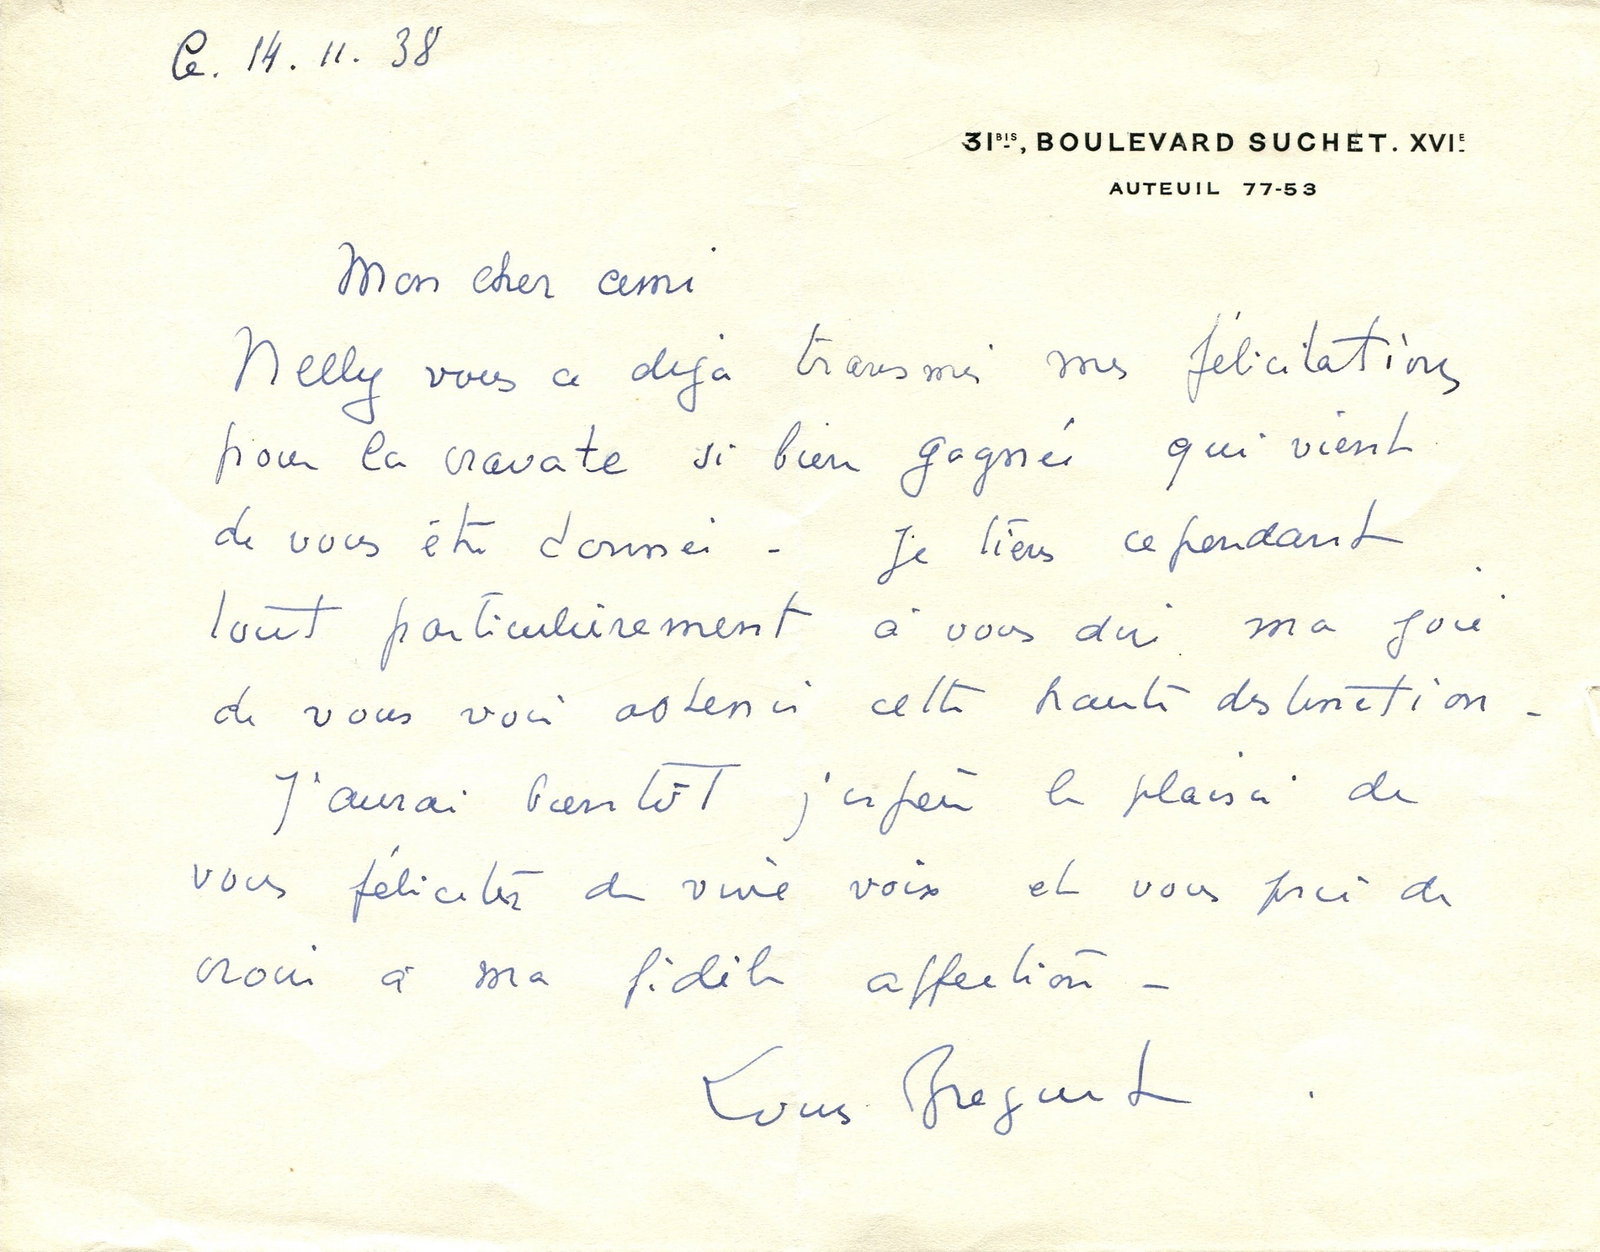 Le. 14. 11. 38
31BIS, BOULEVARD SUCHET. XVIE
AUTEUIL 77-53
Mon cher ami
Nelly vous a déja transmis mes félicitations
pour la cravate si bien gagnée qui vient
de vous être donnée - Je tiens cependant
tout particulièrement à vous dire ma joie
de vous voir obtenir cette haute distinction -
J'aurai bientôt j'espère le plaisir de
vous féliciter de vive voix et vous prie de
croire à ma fidèle affection -
Louis Breguet